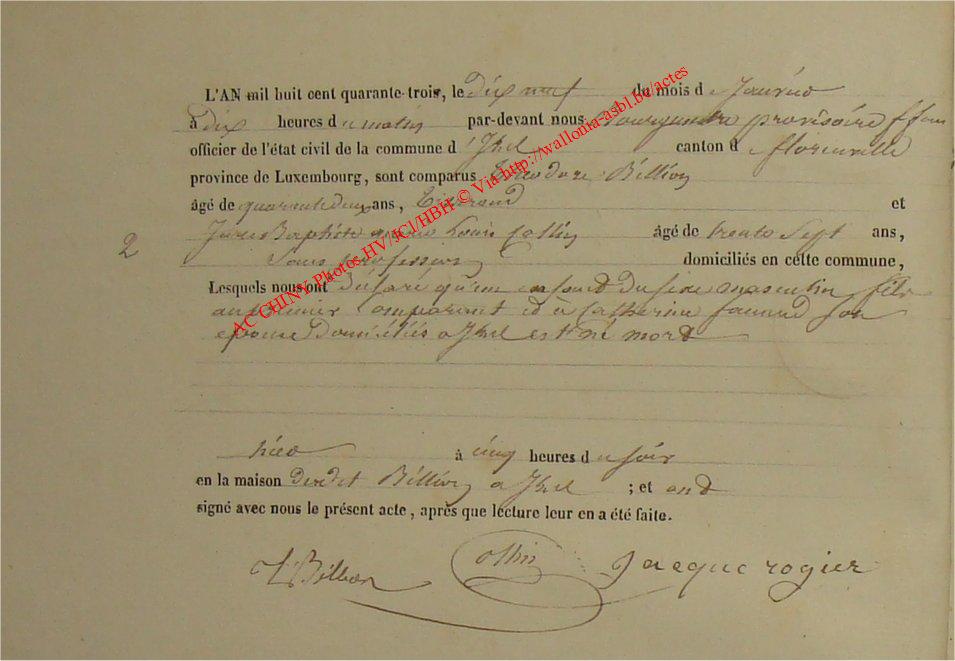 L'AN mil huit cent quarante-trois, le dix neuf du mois de Janvier
à dix heures du matin par-devant nous Bourgmestre provisoire ff
officier de l'état civil de la commune d'Izel canton de florenville
province de Luxembourg, sont comparus Théodore Billion
âgé de quarante deux ans, Tisserand et
2 Jean Baptiste Louis Collin âgé de trente Sept ans,
Sous professeur domiciliés en cette commune,
Lesquels nous ont déclaré qu'un enfant du sexe masculin fils
au premier Comparant et à Catherine son
épouse Domiciliés a Izel est né mord
hier à cinq heures du soir
en la maison dudit Billion a Izel ; et ond
signé avec nous le présent acte, après que lecture leur en a été faite.
T Billion Collin Jacque rogier
AC CHINY Photos HV/JCl/HBH © Via http://wallonia-asbl.be/actes